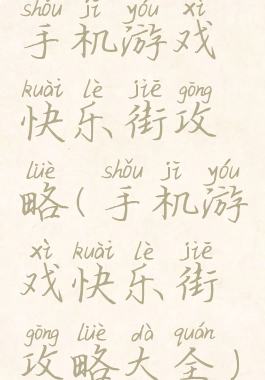 shǒu jī yóu xì
手机游戏
kuài lè jiē gōng
快乐街攻
lüè shǒu jī yóu
略(手机游
xì kuài lè jiē
戏快乐街
gōng lüè dà quán
攻略大全)